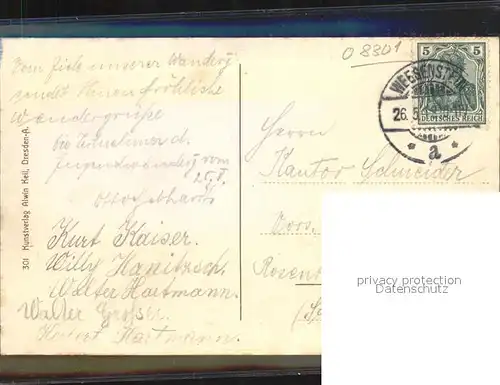 Vom Ziele unserer Wanderg
sendet Ihnen fröhliche
Wandergrüße
die Teilnehmer d.
Jugendwanderg vom
25. V.
Otto Gebhardt
Kurt Kaiser.
Willy Hanitzsch.
Walter Hartmann.
Walter Großer.
Herbert Hartmann.
301 Kunstverlag Alwin Keil, Dresden-A.
O 8301
5 5
DEUTSCHES REICH
WEESENSTEIN
26. 5.
* a *
Herrn
Kantor Schneider
Rosen
privacy protection
Datenschutz